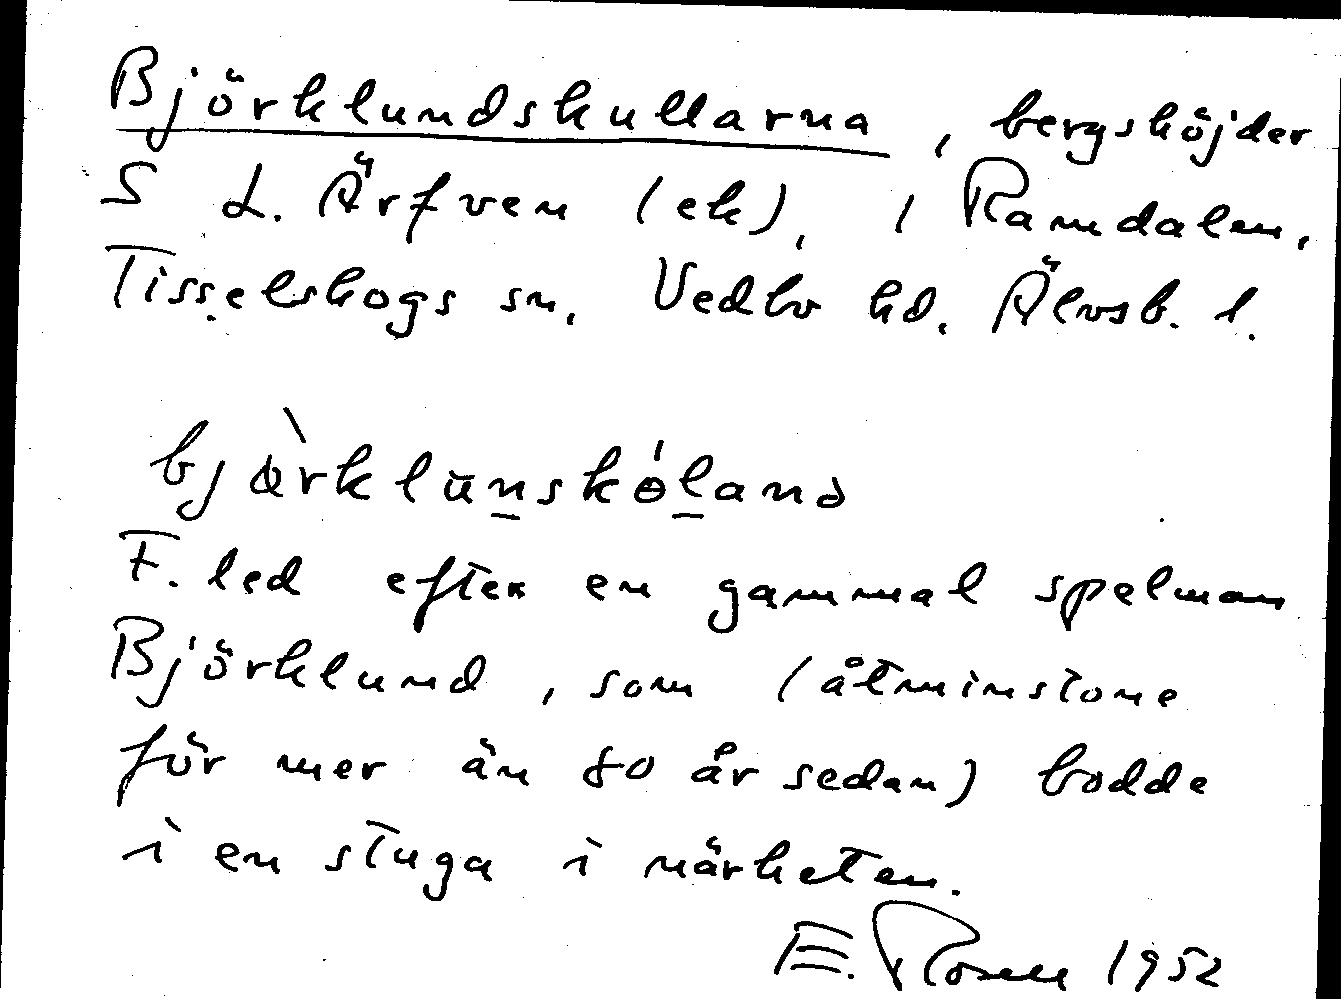 Björklundskullarna, bergshöjder
S L. Ärfven (ek), i Ramdalen,
Tisselskogs sn, Vedbo hd. Älvsb. l.
F. led efter en gammal spelman
Björklund, som (åtminstone
för mer än 80 år sedan) bodde
i en stuga i närheten.
E. Rosen 1952